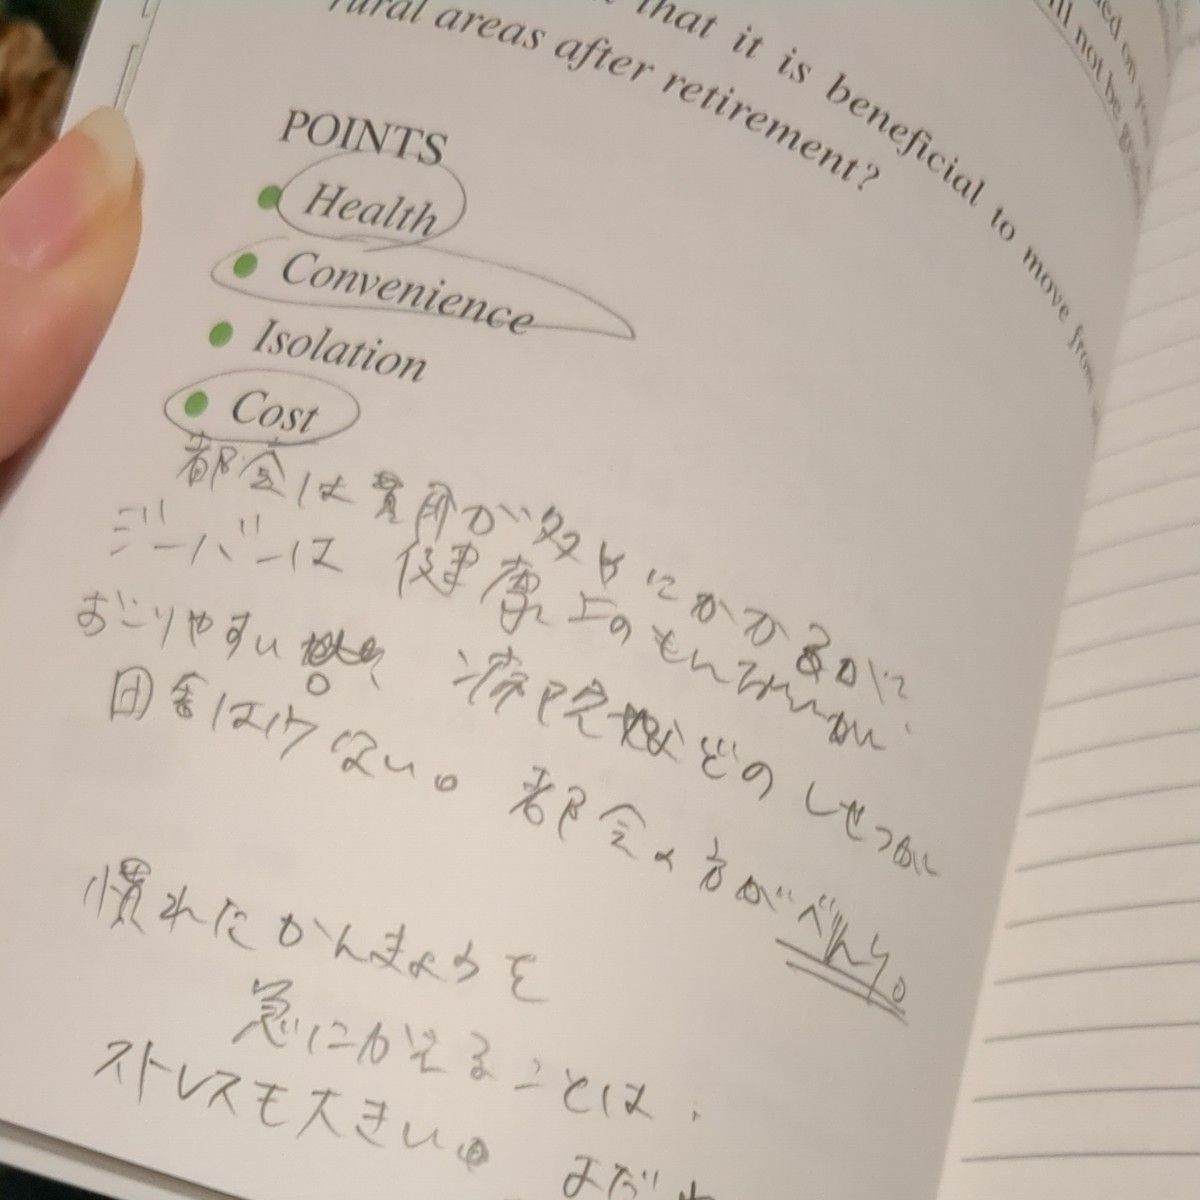 that it is beneficial to move from
rural areas after retirement?
POINTS
Health
Convenience
Isolation
Cost
都会は費用が多めにかかるが
ジーバーは 健康上のもんだいが
おこりやすい 病院などのしせつが
田舎は少ない。都会の方がべんり。
慣れたかんきょうを
急にかえることは、
ストレスも大きい。 まだ